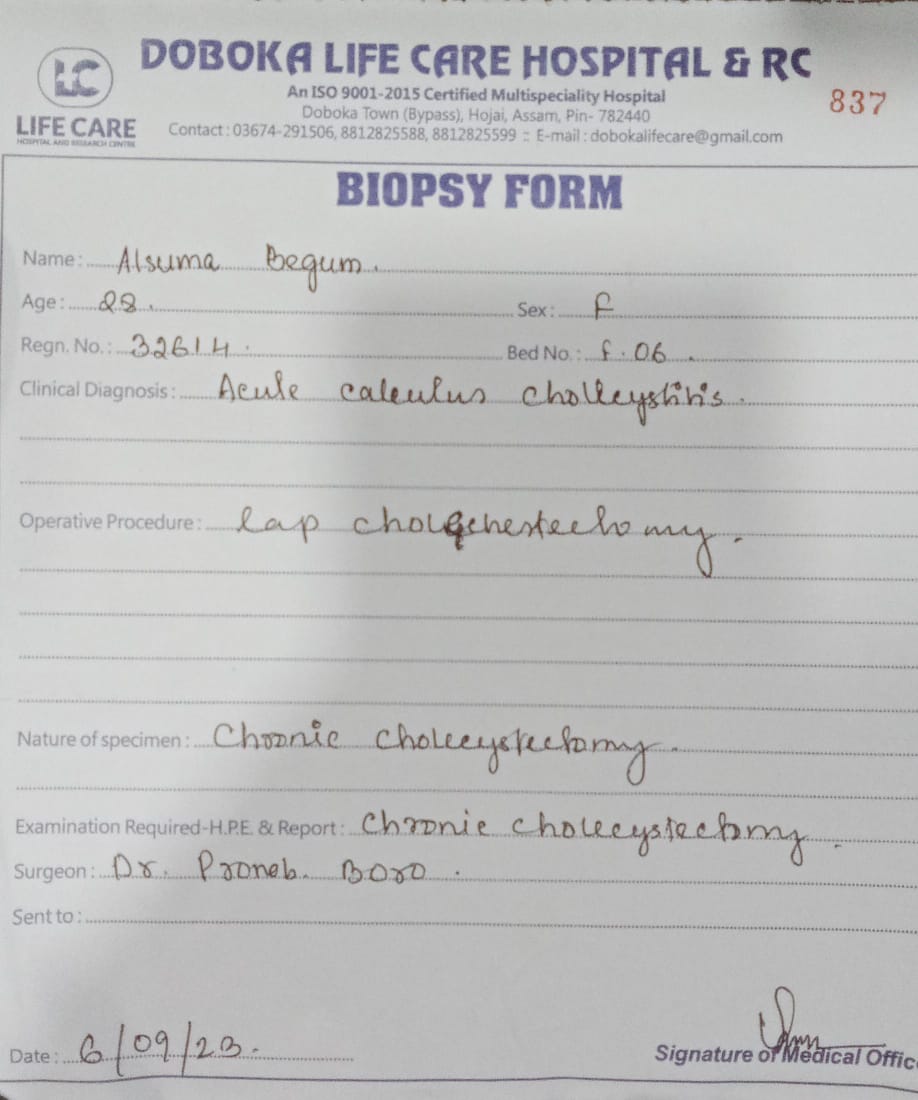 LC
LIFE CARE
HOSPITAL AND RESEARCH CENTRE
DOBOKA LIFE CARE HOSPITAL & RC
An ISO 9001-2015 Certified Multispeciality Hospital
Doboka Town (Bypass), Hojai, Assam, Pin- 782440
Contact : 03674-291506, 8812825588, 8812825599 :: E-mail : dobokalifecare@gmail.com
837
BIOPSY FORM
Name : Alsuma Begum.
Age : 28. Sex : F
Regn. No. : 32614. Bed No. : f. 06.
Clinical Diagnosis : Acule calculus cholleystitis.
Operative Procedure : lap cholechestechomy.
Nature of specimen : Chronic cholecystectomy.
Examination Required-H.P.E. & Report : Chronic cholecystectomy.
Surgeon : Dr. Proneb. Boro.
Sent to :
Date : 6/09/23.
Signature of Medical Offic